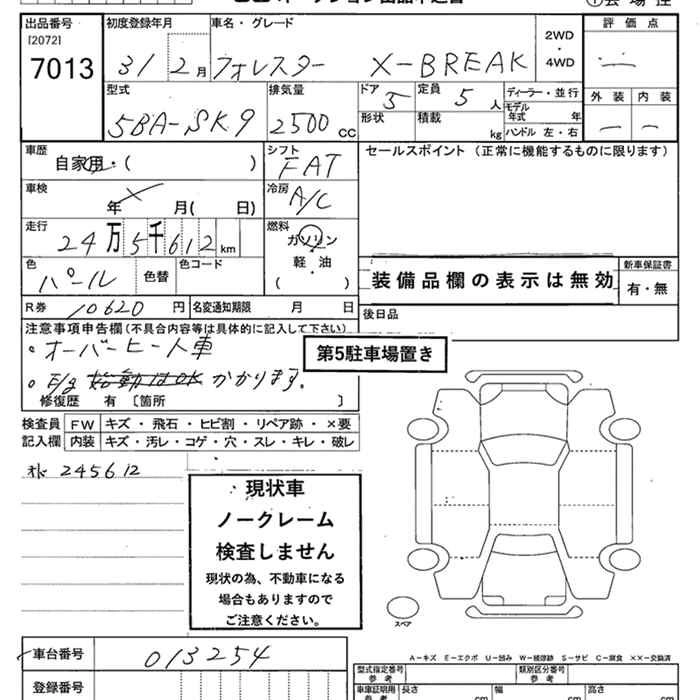 出品番号 初度登録年月 車名・グレード 評価点
[2072] 2WD
7013 31 2月 フォレスター X-BREAK ・
4WD
型式 排気量 ドア 定員 ディーラー・並行 外装 内装
5BA-SK9 2500cc 5 5人 モデル年式 年
形状 積載 kg ハンドル 左・右
車歴 シフト セールスポイント(正常に機能するものに限ります)
自家用・( ) FAT
車検 冷房
年 月( 日) A/C
走行 燃料
24万5千612km ガソリン
色 色替 色コード 軽・油 新車保証書
パール ( ) 装備品欄の表示は無効 有・無
R券 10620円 名変通知期限 月 日 後日品
注意事項申告欄(不具合内容等は具体的に記入して下さい)
・オーバーヒート車 第5駐車場置き
・E/g 始動はOK かかります。
修復歴 有 〔箇所 〕
検査員 FW キズ・飛石・ヒビ割・リペア跡・×要
記入欄 内装 キズ・汚レ・コゲ・穴・スレ・キレ・破レ
オド 245612
現状車
ノークレーム
検査しません
現状の為、不動車になる
場合もありますので
ご注意ください。
スペア
A-キズ E-エクボ U-凹み W-補修跡 S-サビ C-腐食 ××-交換済
車台番号 013254 型式指定番号 参考 類別区分番号 参考
登録番号 車庫証明用 参考 長さ cm 幅 cm 高さ cm